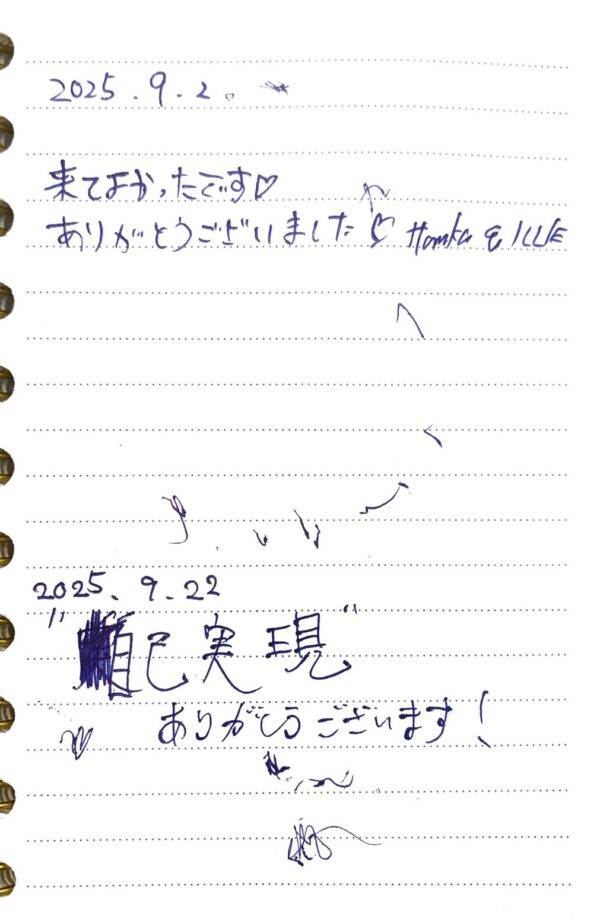 2025.9.2.
来てよかったです♡
ありがとうございました♡
2025.9.22
"自己実現"
ありがとうございます!